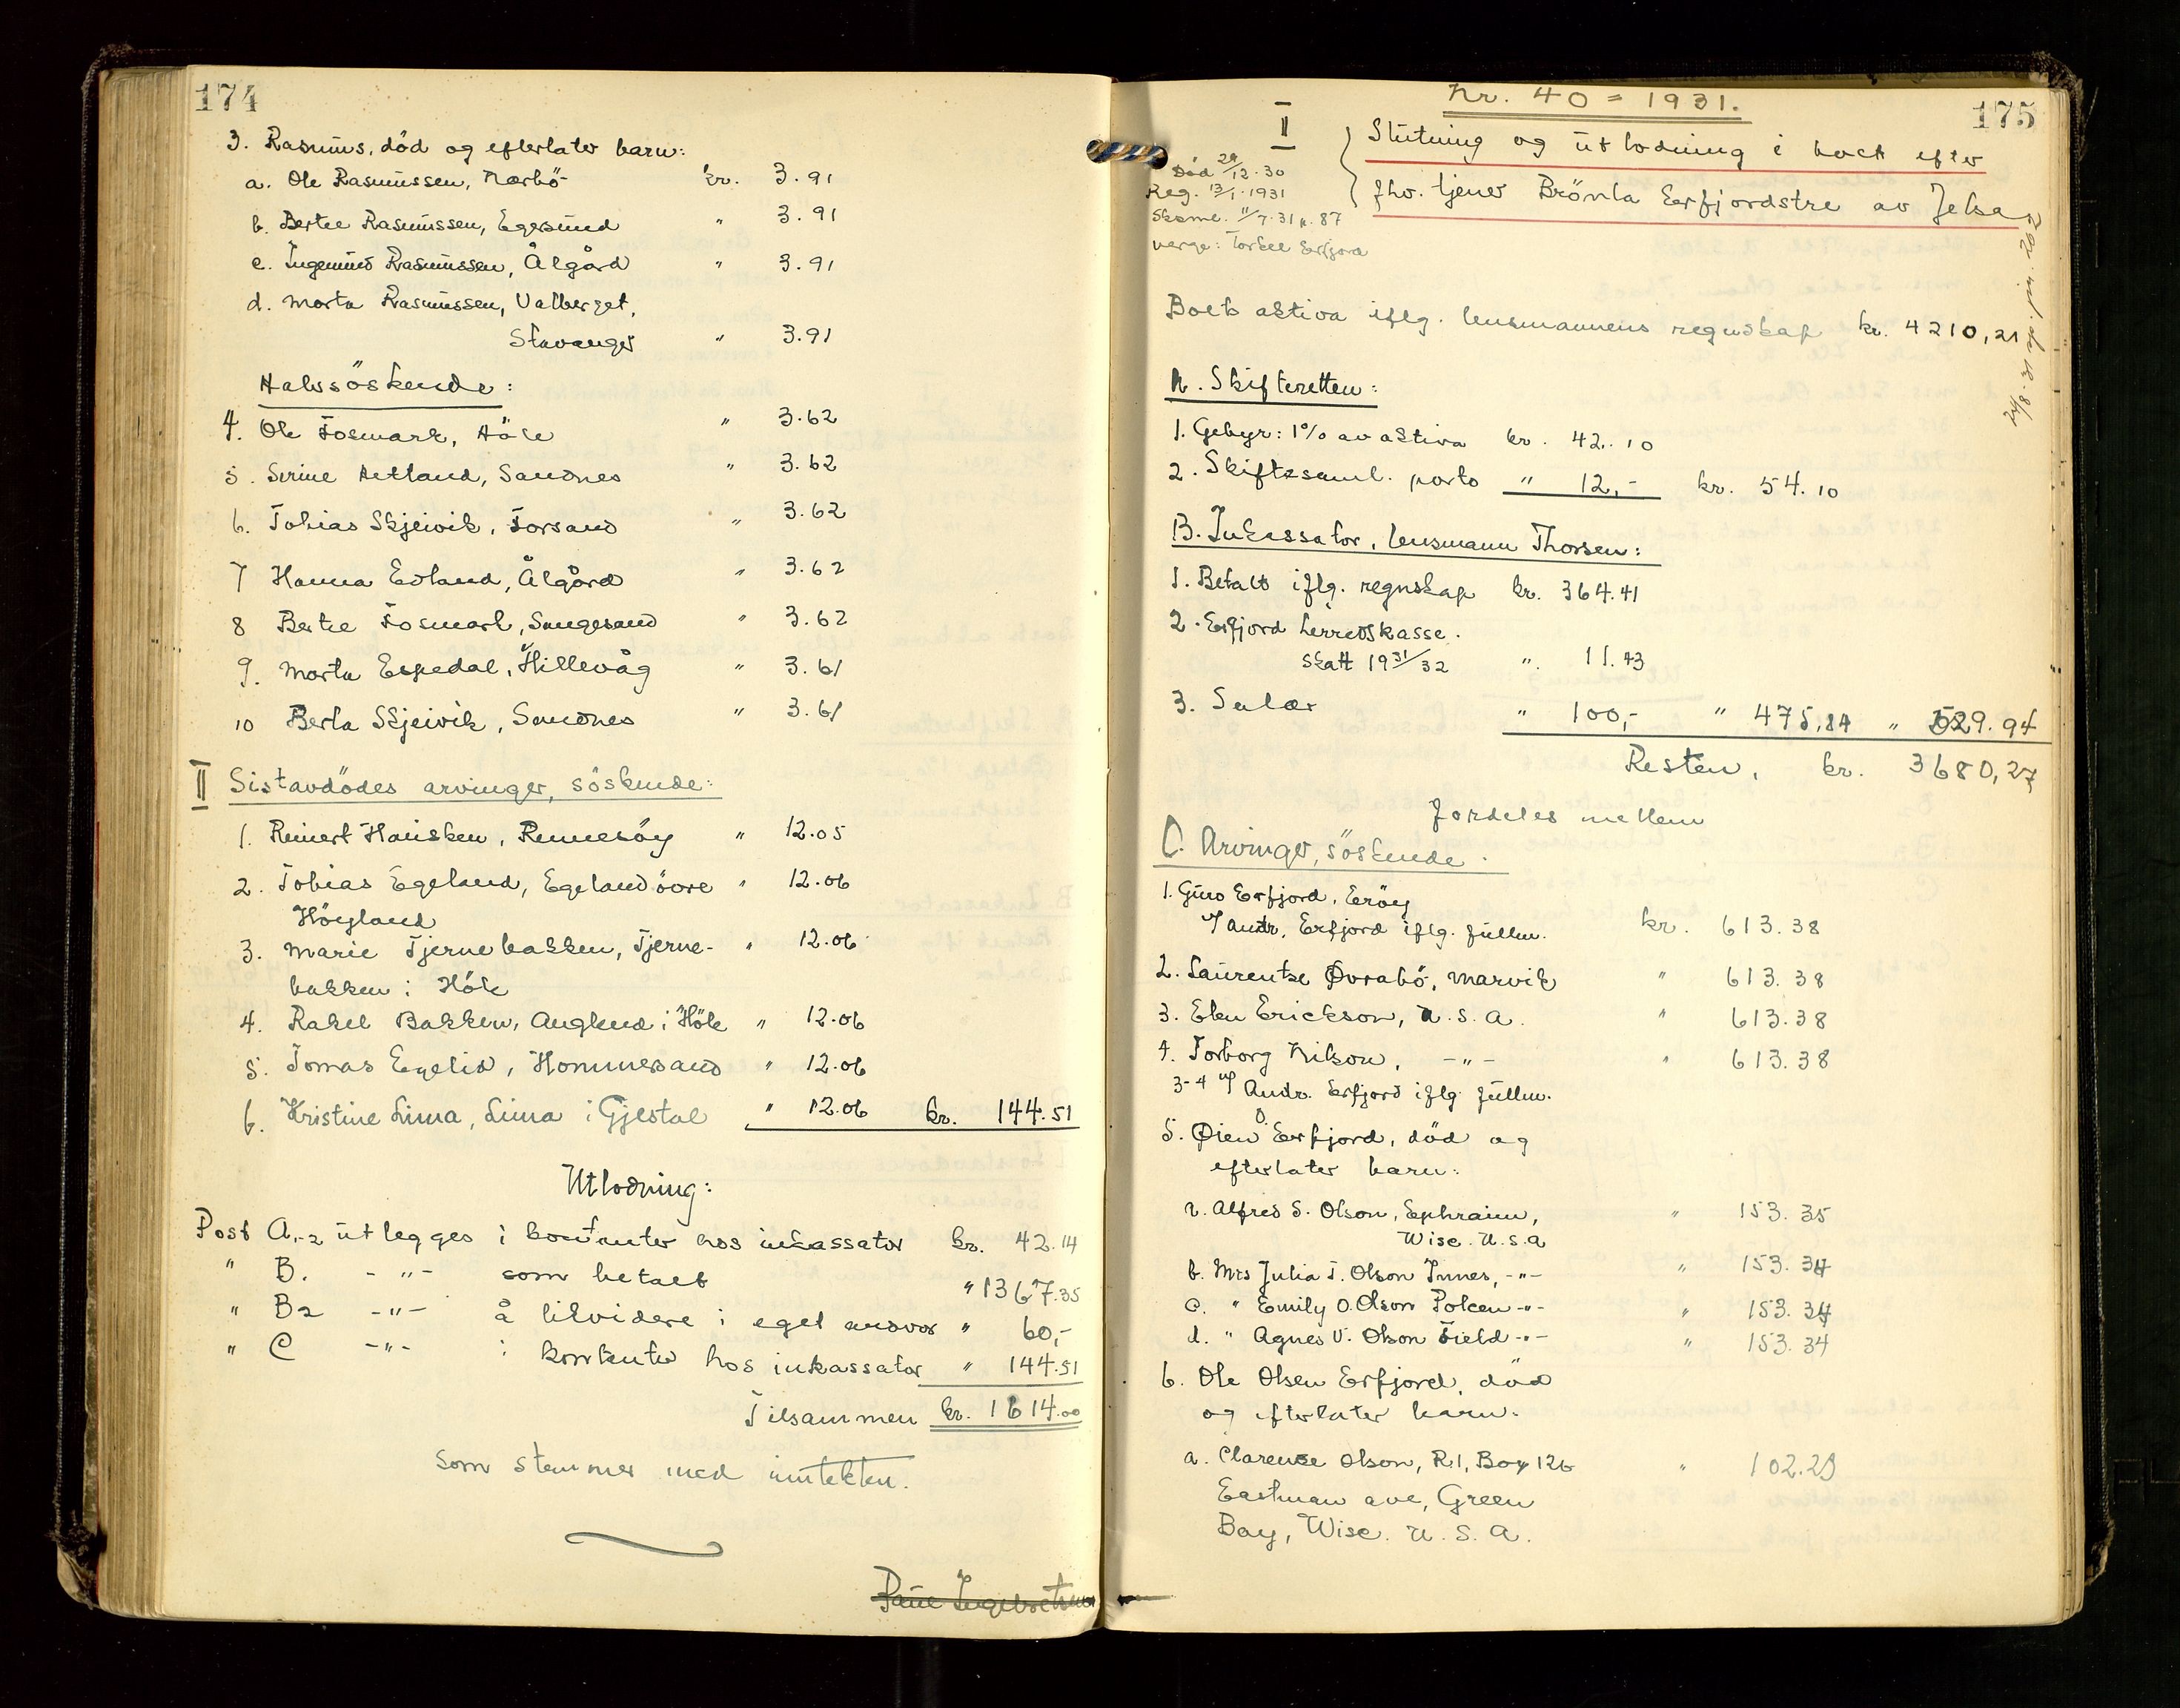 174
3. Rasmus, död og efterlater barn:
a. Ole Rasmussen, Nærbö kr. 3.91
b. Bertee Rasmussen, Egersund " 3.91
c. Ingemund Rasmussen, Ålgård " 3.91
d. Marta Rasmussen, Valberget,
Stavanger " 3.91
Halvsöskende:
4. Ole Fosmark, Höle " 3.62
5. Serine Aetland, Sandnes " 3.62
6. Tobias Skjeivik, Forsand " 3.62
7 Hanna Edland, Ålgård " 3.62
8 Bertee Fosmark, Songesand " 3.62
9. Marta Espedal, Hillevåg " 3.61
10 Berta Skjeivik, Sandnes " 3.61
II Sistavdödes arvinger, söskende:
1. Reinert Hausken, Rennesöy " 12.05
2. Tobias Egeland, Egeland övre " 12.06
Höyland
3. Marie Tjernebakken, Tjerne- " 12.06
bakken i Höle
4. Rakel Bakken, Auglend i Höle " 12.06
5. Tomas Eyelid, Hommersand " 12.06
6. Kristine Lima, Lima i Gjestal " 12.06 kr. 144.51
Utlodning:
Post A1-2 utlegges i kontanter hos inkassator kr. 42.14
" B. -"- som betalt " 1367.35
" B2 -"- å likvidere i eget ansvar " 60,-
" C -"- i kontanter hos inkassator " 144.51
Tilsammen kr. 1614.00
som stemmer med inntekten.
Paul Ingebretsen
175
Nr. 40 = 1931.
II
Slutning og utlodning i boet efter
fhv. tjener Brönla Erfjordstre av Jelsa
Död 29/12.30
Reg. 13/1.1931
Sksml. 11/7.31 p. 87
verge: Torkel Erfjord
24/8.31 sp. pr. nr. 262
Boets aktiva iflg. lensmannens regnskap kr. 4210,21
A. Skifteretten:
1. Gebyr: 1% av aktiva kr. 42.10
2. Skiftesaml. porto " 12,- kr. 54.10
B. Inkassator, lensmann Thorsen:
1. Betalt iflg. regnskap kr. 364.41
2. Erfjord herredskasse.
skatt 1931/32 ". 11.43
3. Salær " 100,- " 475,84 " 529.94
Resten, kr. 3680,27
fordeles mellem
C. Arvinger, söskende.
1. Guro Erfjord, Eröy
v/ Andr. Erfjord iflg. fullm. kr. 613.38
2. Laurentse Øvrabö, Marvik " 613.38
3. Elen Erickson, U.S.A. " 613.38
4. Torborg Nilson, -"- " 613.38
3-4 v/ Andr. Erfjord iflg. fullm.
5. Øien O. Erfjord, död og
efterlater barn:
a. Alfred S. Olson, Ephraim, " 153.35
Wisc. U.S.A
b. Mrs Julia T. Olson Innes, -"- " 153.34
c. " Emily O. Olson Polcen -"- " 153.34
d. " Agnes V. Olson Field -"- " 153.34
6. Ole Olsen Erfjord, död
og efterlater barn.
a. Clarence Olson, R.1, Box 126 " 102.23
Eastman ave, Green
Bay, Wisc. U.S.A.